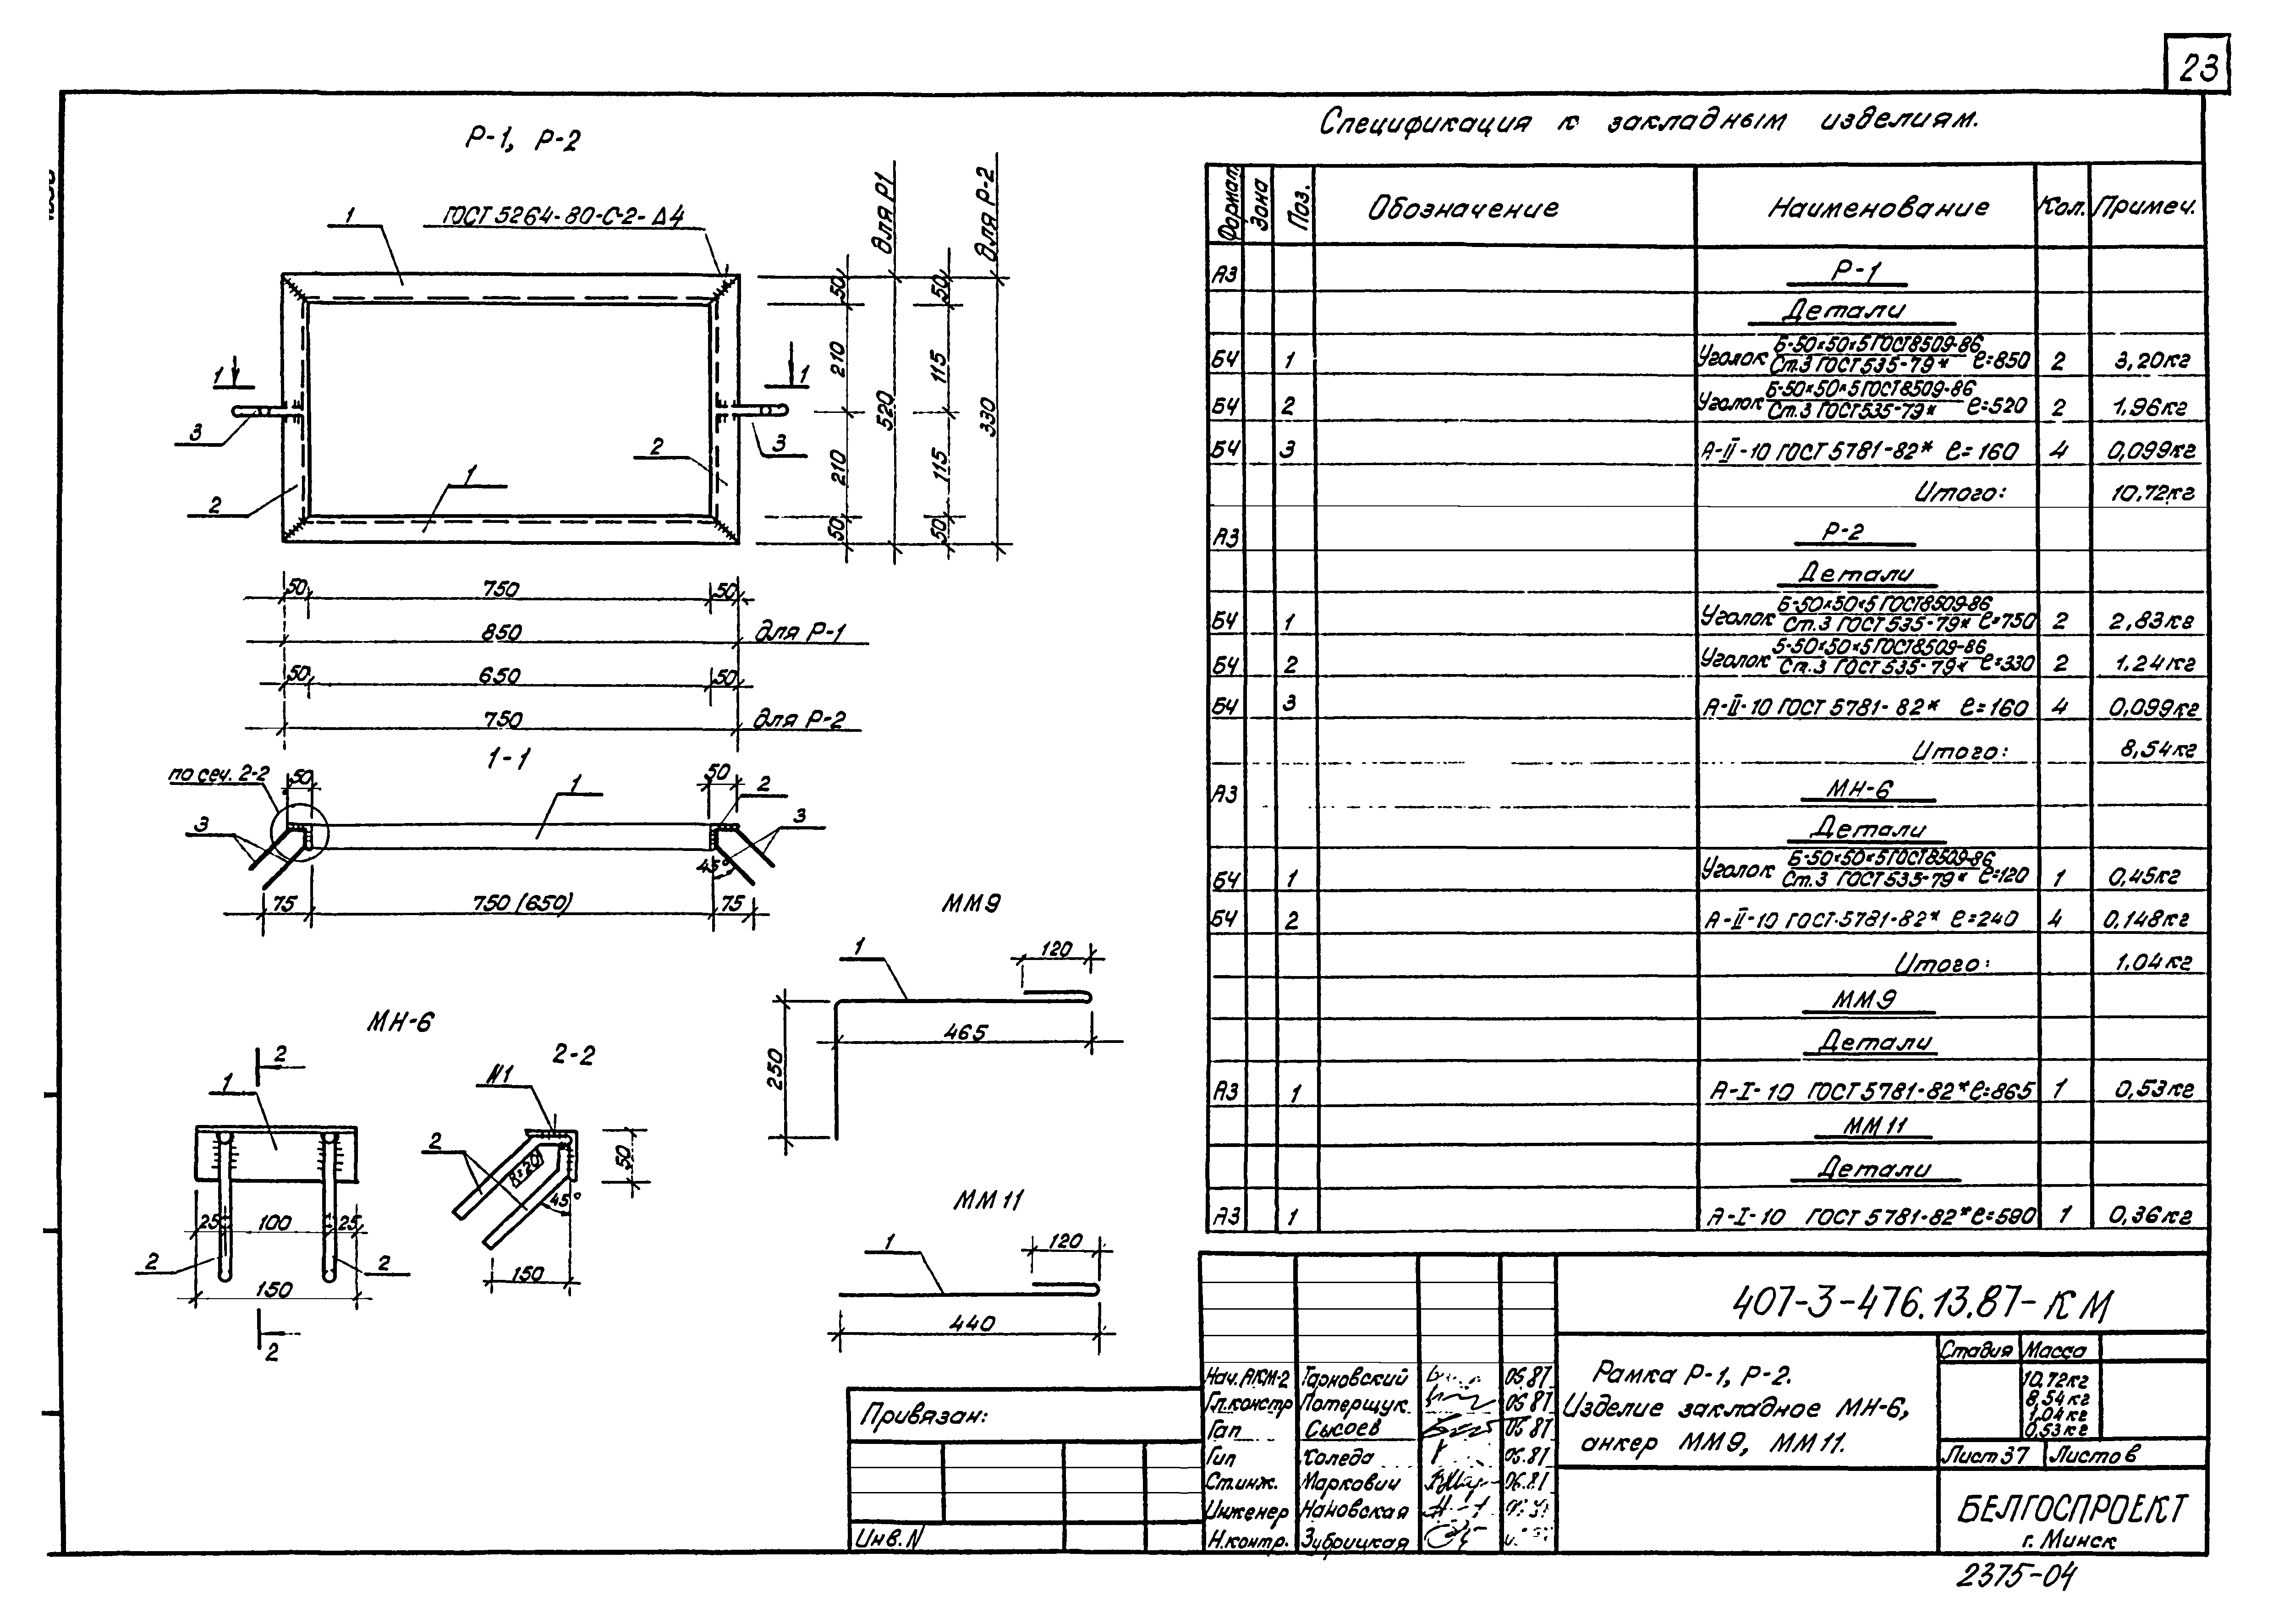 23
Р-1, Р-2
ГОСТ 5264-80-С-2-Δ4
1
для Р1
для Р-2
50
210
520
210
50
50
115
330
115
50
1
1
3
2
3
1
2
50 750 50
850 для Р-1
50 650 50
750 для Р-2
1-1
по сеч. 2-2
50
50
1
2
3
3
45°
75 750 (650) 75
ММ9
1
120
465
250
МН-6
2
1
25 100 25
2
2
150
2
2-2
N1
2
R=20
45°
50
150
ММ11
1
120
440
Спецификация к закладным изделиям.
Формат Зона Поз. Обозначение Наименование Кол. Примеч.
А3 Р-1
Детали
Б4 1 Уголок Б-50×50×5 ГОСТ 8509-86 / Ст.3 ГОСТ 535-79* ℓ=850 2 3,20кг
Б4 2 Уголок Б-50×50×5 ГОСТ 8509-86 / Ст.3 ГОСТ 535-79* ℓ=520 2 1,96кг
Б4 3 А-II-10 ГОСТ 5781-82* ℓ=160 4 0,099кг
Итого: 10,72кг
А3 Р-2
Детали
Б4 1 Уголок Б-50×50×5 ГОСТ 8509-86 / Ст.3 ГОСТ 535-79* ℓ=750 2 2,83кг
Б4 2 Уголок Б-50×50×5 ГОСТ 8509-86 / Ст.3 ГОСТ 535-79* ℓ=330 2 1,24кг
Б4 3 А-II-10 ГОСТ 5781-82* ℓ=160 4 0,099кг
Итого: 8,54кг
А3 МН-6
Детали
Б4 1 Уголок Б-50×50×5 ГОСТ 8509-86 / Ст.3 ГОСТ 535-79* ℓ=120 1 0,45кг
Б4 2 А-II-10 ГОСТ 5781-82* ℓ=240 4 0,148кг
Итого: 1,04кг
ММ9
Детали
А3 1 А-I-10 ГОСТ 5781-82* ℓ=865 1 0,53кг
ММ11
Детали
А3 1 А-I-10 ГОСТ 5781-82* ℓ=590 1 0,36кг
407-3-476.13.87-КМ
Нач.АКМ-2 Тарновский 05.87
Гл.констр Потерщук 05.87
Гап Сысоев 05.87
Гип Коледа 05.87
Ст.инж. Маркович 06.87
Инженер Нановская
Н.контр. Зубрицкая
Рамка Р-1, Р-2.
Изделие закладное МН-6,
анкер ММ9, ММ11.
Стадия Масса
10,72кг
8,54кг
1,04кг
0,53кг
Лист 37 Листов
БЕЛГОСПРОЕКТ
г. Минск
Привязан:
Инв.N
2375-04